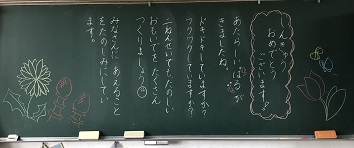 しんきゅう
おめでとう
ございます。
あたらしい はるが
きましたね。
ドキドキしていますか？
ワクワクしていますか？
二ねんせいでも たのしい
おもいでを たくさん
つくりましょう
みなさんに あえること
をたのしみにしてい
ます。